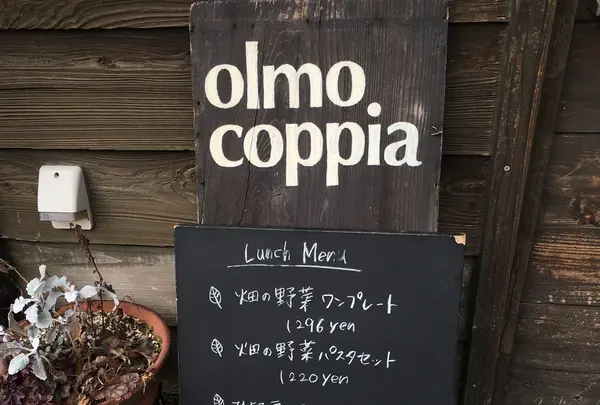 olmo
coppia
Lunch Menu
畑の野菜ワンプレート
1296 yen
畑の野菜パスタセット
1220 yen